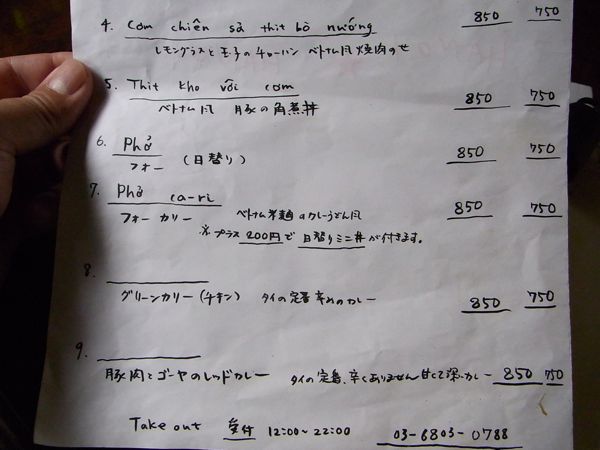 4. Cơm chiên sả thịt bò nướng 850 750
レモングラスと玉子のチャーハン ベトナム風焼肉のせ
5. Thịt kho với cơm 850 750
ベトナム風 豚の角煮丼
6. Phở 850 750
フォー (日替り)
7. Phở ca-ri 850 750
フォー カリー ベトナム米麺のカレーうどん風
※プラス200円で日替りミニ丼が付きます。
8.
グリーンカリー(チキン) タイの定番 辛めのカレー 850 750
9.
豚肉とゴーヤのレッドカレー タイの定番、辛くありません 甘くて深いカレー 850 750
Take out 受付 12:00~22:00 03-6803-0788